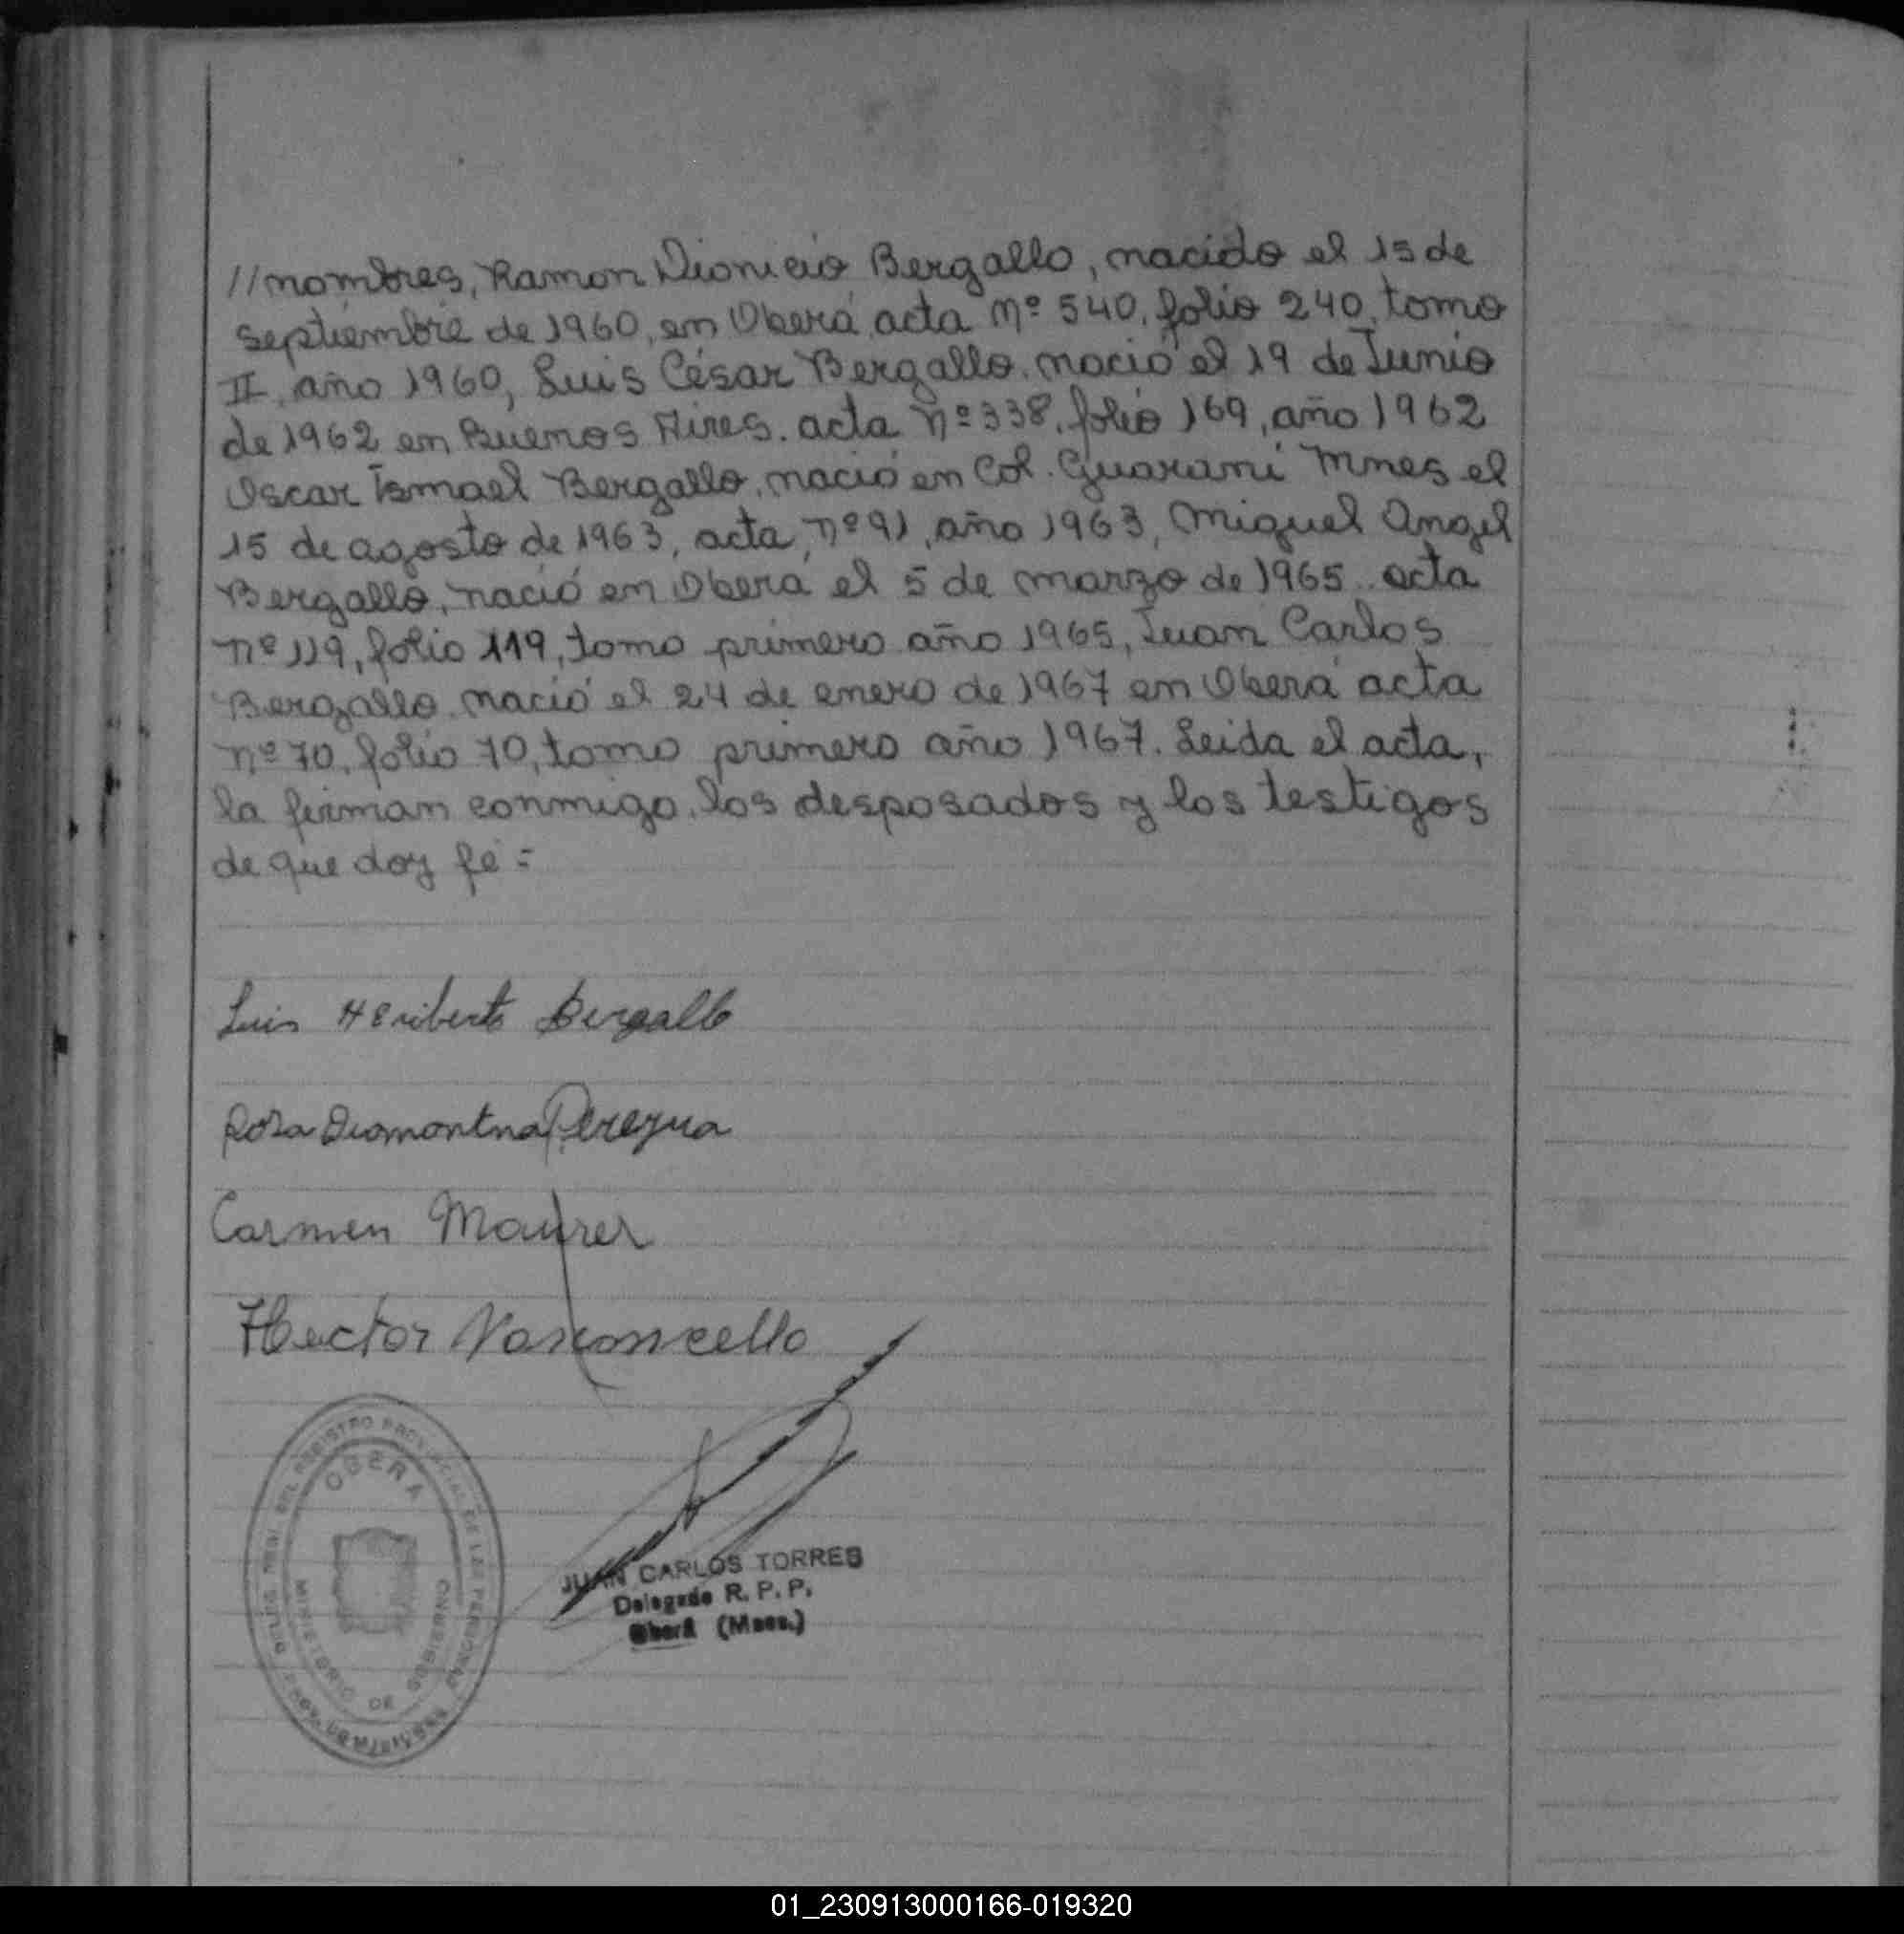 //nombres, Ramon Dionicio Bergallo, nacido el 15 de
septiembre de 1960, en Oberá, acta Nº 540, folio 240, tomo
II, año 1960, Luis César Bergallo, nació el 19 de Junio
de 1962 en Buenos Aires. acta Nº 338, folio 169, año 1962
Oscar Ismael Bergallo, nació en Col. Guaraní Mnes el
15 de agosto de 1963, acta, nº 91, año 1963, Miguel Angel
Bergallo, nació en Oberá el 5 de marzo de 1965. acta
nº 119, folio 119, tomo primero año 1965, Juan Carlos
Bergallo nació el 24 de enero de 1967 en Oberá acta
nº 70, folio 70, tomo primero año 1967. Leida el acta,
la firman conmigo, los desposados y los testigos
de que doy fé =
Luis Heriberto Bergallo
Rosa Pereyra
Carmen Maurer
Hector Vasconcello
REGISTRO PROVINCIAL DE LAS PERSONAS
OBERA
MINISTERIO DE GOBIERNO
JUAN CARLOS TORRES
Delegado R. P. P.
Oberá (Mnes.)
01_230913000166-019320